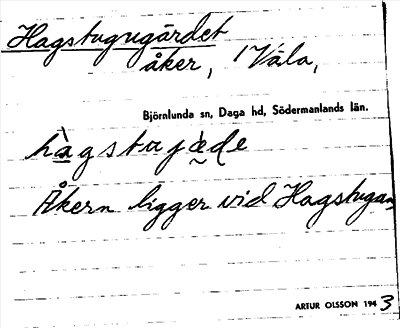 Hagstugugärdet
åker, 1 Våla,
Björnlunda sn, Daga hd, Södermanlands län.
hàgstajæ̀de
Åkern ligger vid Hagstugan
ARTUR OLSSON 1943